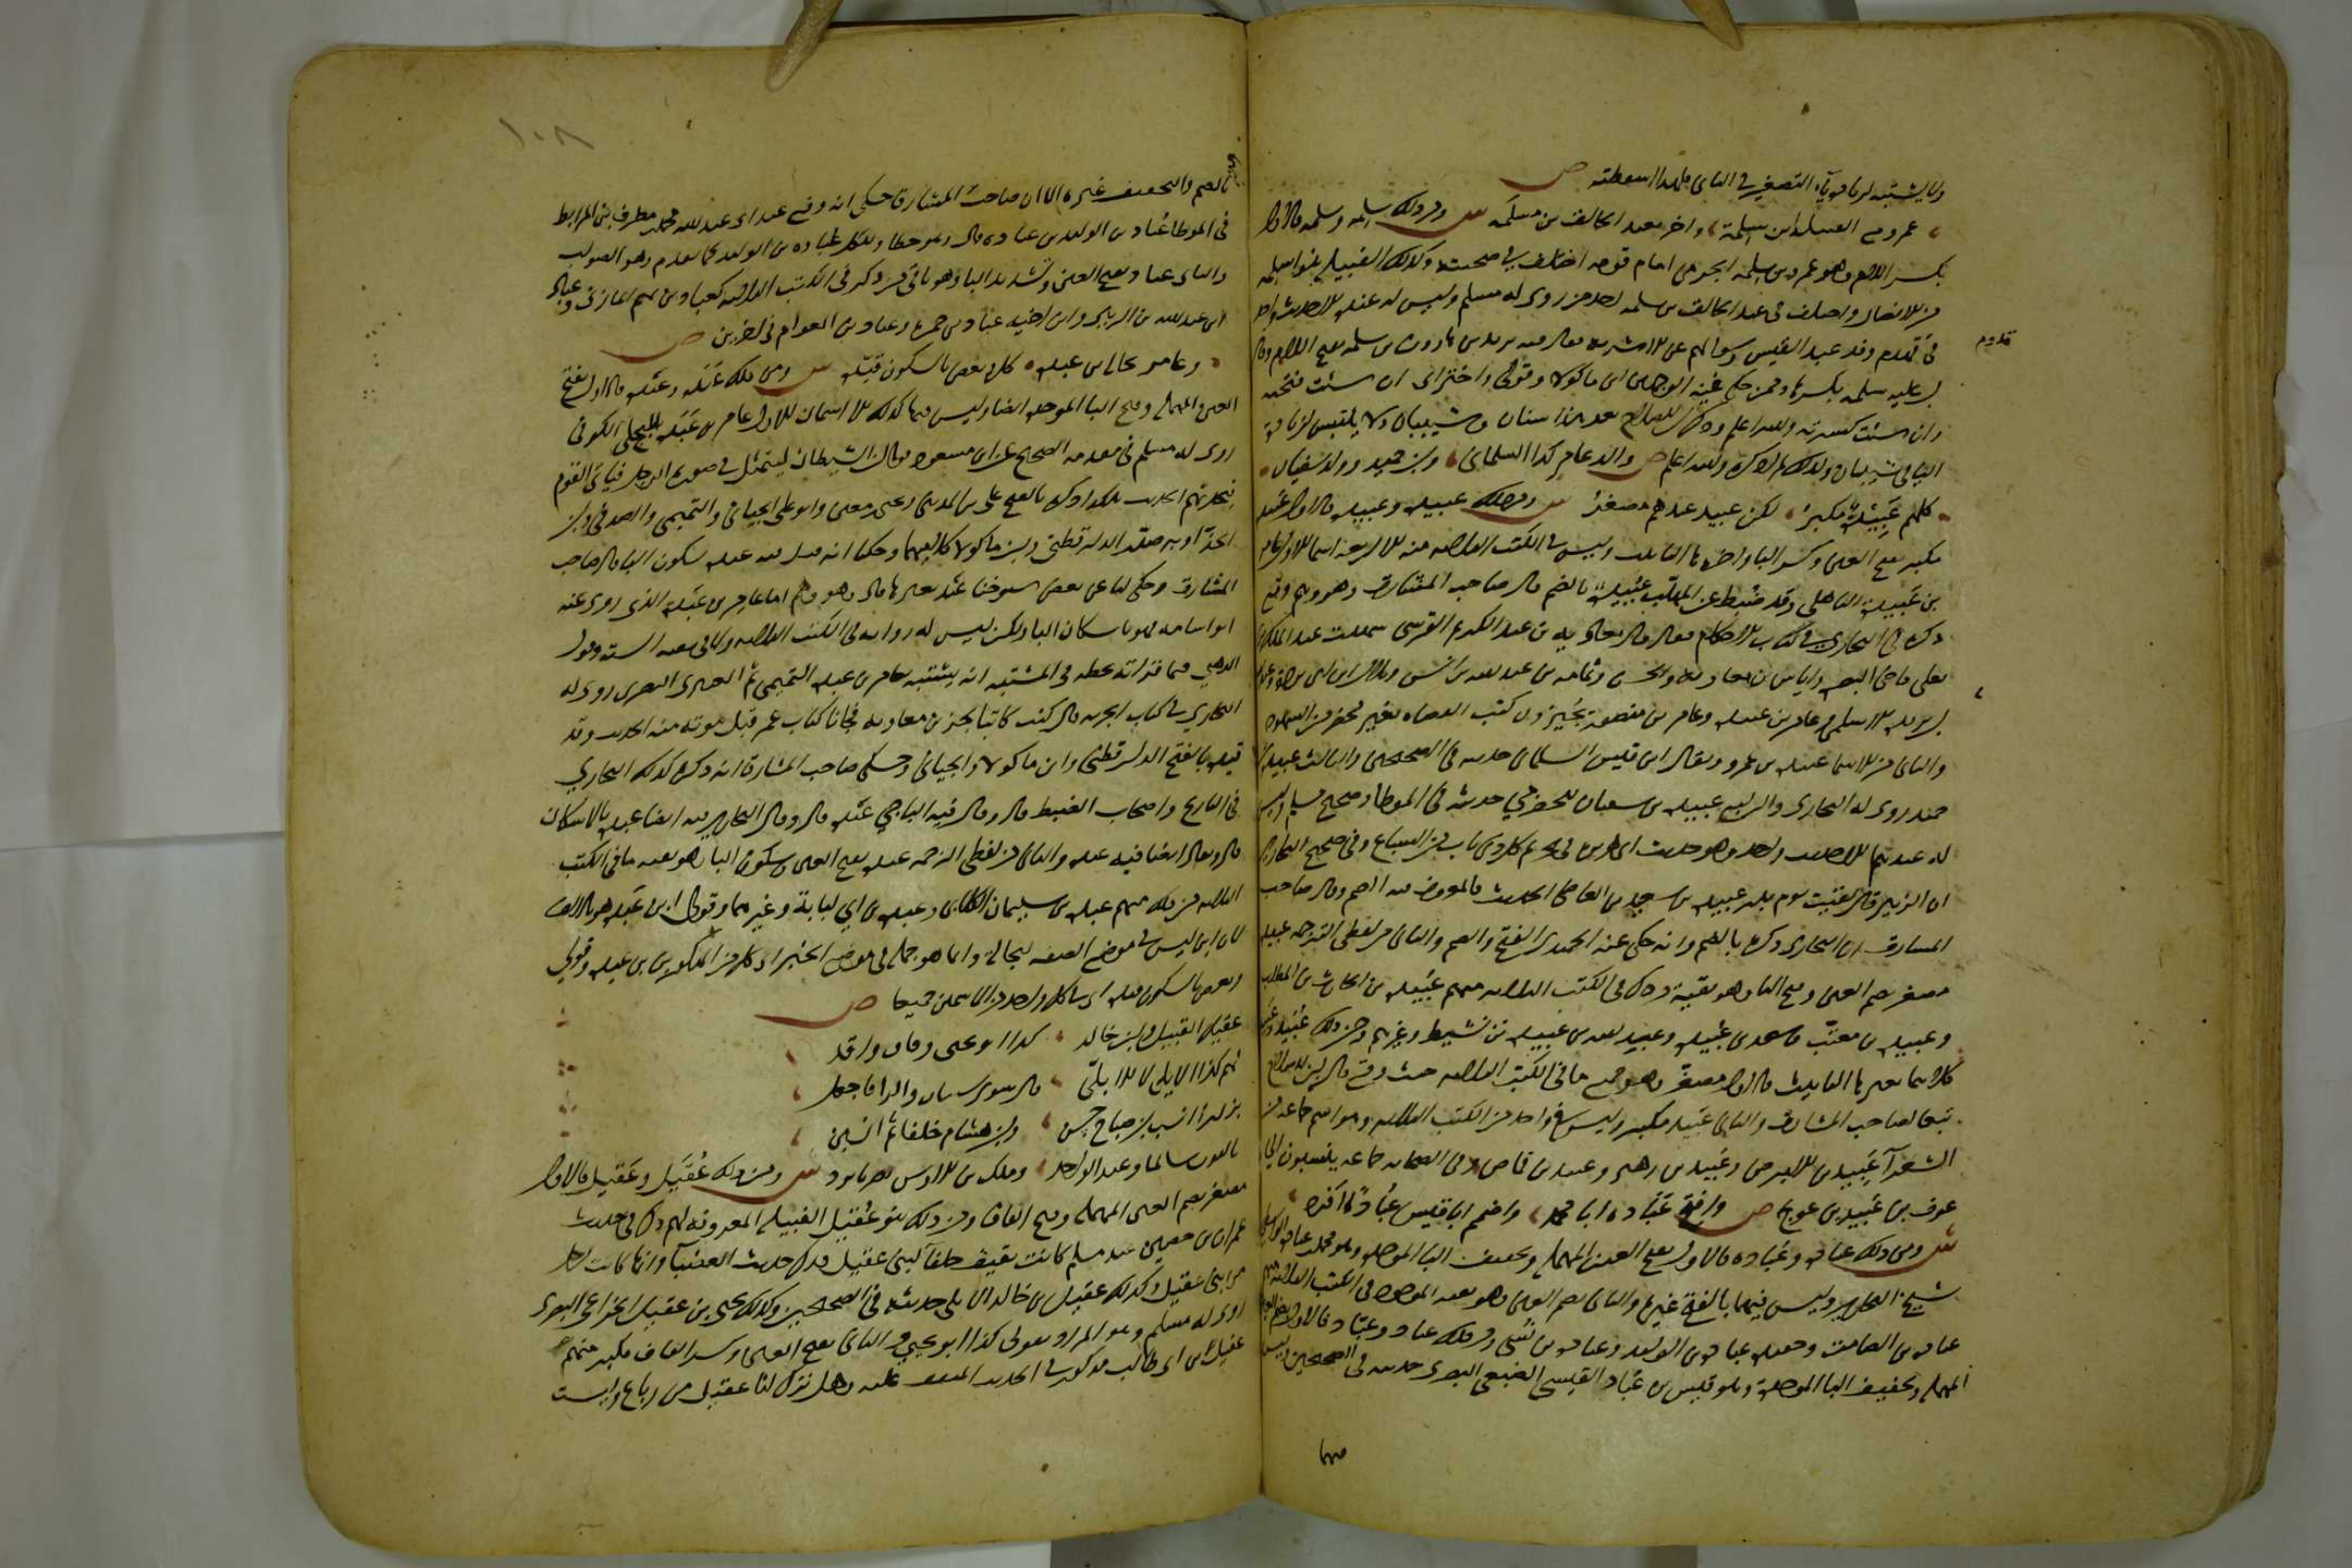 ولا يشتبه لزيادة ياء التصغير في الثاني فلهذا اسقطته ص
عمرو مع القبيلة ابن سلمة واختر بعبد الخالق بن سلمه ش ومن ذلك سلمه وسلمه فالاول
بكسر اللام وهو عمرو بن سلمه الجرمي امام قومه اختلف في صحبته وكذلك القبيلة بنو سلمه
من الانصار واختلف في عبد الخالق بن سلمه احد من روى له مسلم وليس له عنده الا حديث واحد
في قدوم وفد عبد القيس وسوالهم عن الاشربة فقال فيه يزيد بن هارون بن سلمه بفتح اللام وقال
ابن عليه سلمه بكسرها وممن حكى فيه الوجهين ابن ماكولا وقولي واختر اي ان شئت فتحته
وان شئت كسرته والله اعلم
ص والد عامر كذا السلماني وابن حميد وولد سفيان
كلهم عبيدة مكبر لكن عبيد عندهم مصغر ش ومن ذلك عبيدة وعبيدة فالاول عبيدة
مكبر بفتح العين وكسر الباء واخره هاء التانيث وليس في الكتب الثلاثة منه الا اربعة اسما الاول عامر
بن عبيدة الباهلي وقد ضبط عن المهلب عبيدة بالضم قال صاحب المشارق وهو وهم وقع
ذكره في البخاري في كتاب الاحكام فقال قال معاوية بن عبد الكريم القرشي شهدت عبد الملك بن
يعلى قاضي البصرة واياس بن معاوية والحسن وثمامة بن عبد الله بن انس وبلال بن ابي بردة وعبد الله
بن بريدة الاسلمي وعامر بن عبيدة وعباد بن منصور يجيزون كتب القضاه بغير محضر من الشهود
والثاني من الاسما عبيدة بن عمرو ويقال ابن قيس السلماني حديثه في الصحيحين والثالث عبيدة بن
حميد روى له البخاري والرابع عبيدة بن سفيان الحضرمي حديثه في الموطا وصحيح مسلم وليس
له عندهما الا حديث واحد وهو حديث ابي هريرة في تحريم كل ذي ناب من السباع وفي صحيح البخاري
ان الزبير قال لقيت يوم بدر عبيدة بن سعيد بن العاصي الحديث فالمعروف فيه الضم وقال صاحب
المشارق ان البخاري ذكره بالضم وانه حكى عنه الحميدي الفتح والضم والثاني من لفظي الترجمه عبيده
مصغر بضم العين وفتح الباء وهو بقية من ذكر في الكتب الثلاثة منهم عبيدة بن الحارث بن المطلب
وعبيدة بن معتب وسعد بن عبيدة وعبد الله بن عبيدة بن نشيط وغيرهم ومن ذلك عبيد وعبيد
كلاهما بغير هاء التانيث فالاول مصغر وهو جميع ما في الكتب الثلاثه حيث وقع قال ابن الصلاح
تبعا لصاحب المشارق والثاني عبيد مكبر وليس في واحد من الكتب الثلاثه وهو اسم جماعه من
الشعرا عبيد بن الابرص وعبيد بن زهير وعبيد بن قماص وفي الصحابه جماعه ينتسبون الى
عوف بن عبيد بن عويج ص وافتح عبادة ابا محمد واضمم ابا قيس عبادا افرد
ش ومن ذلك عبادة وعبادة فالاول بفتح العين المهمله وتخفيف الباء الموحدة وهو محمد بن عبادة الواسطي
شيخ البخاري وليس فيها بالفتح غيره والثاني بضم العين وهو بقية الموجود في الكتب الثلاثه منهم
عبادة بن الصامت وحفيده عبادة بن الوليد وعبادة بن نسي ومن ذلك عباد وعباد فالاول بضم العين
المهمله وتخفيف الباء الموحدة وهو قيس بن عباد القيسي الضبعي البصري حديثه في الصحيحين وليس
فيها
قدوم
١٠٨
بالضم والتخفيف غيره الا ان صاحب المشارق حكى انه وقع عند ابي عبد الله محمد بن مطرف بن المرابط
في الموطا عباد بن الوليد بن عبادة قال وهو خطا والكل عبادة بن الوليد كما تقدم وهو الصواب
والثاني عباد بفتح العين وتشديد الباء وهو باقي من ذكر في الكتب الثلاثه كعباد بن تميم المازني وعباد
ابن عبد الله بن الزبير وابن اخيه عباد بن حمزه وعباد بن العوام في اخرين ص
وعامر بجالة بن عبده كل وبعض بالسكون قيده ش ومن ذلك عبدة وعبدة فالاول بفتح
العين المهمله وفتح الباء الموحدة ايضا وليس فيها كذلك الا اسمان الاول عامر بن عبدة البجلي الكوفي
روى له مسلم في مقدمه الصحيح عن ابن مسعود قوله ان الشيطان ليتمثل في صورة الرجل فياتي القوم
فيحدثهم الحديث هكذا ذكره بالفتح علي بن المديني ويحيى بن معين وابو علي الجياني والتميمي والصدفي وابن
الحذا وبه صدر الدارقطني وابن ماكولا كلاميهما وحكيا انه قيل فيه عبدة بسكون الباء قال صاحب
المشارق وحكي لنا عن بعض شيوخنا عبد بغير هاء قال وهو وهم اما عامر بن عبدة الذي روى عنه
ابو اسامه فهو باسكان الباء ولكن ليس له روايه في الكتب الثلاثه ولا في بقيه السته وقول
الذهبي فيما قراته بخطه في المشتبه انه يشتبه بعامر بن عبدة التميمي ثم العنبري البصري روى له
البخاري في كتاب الجزيه قال كنت كاتبا لجزء بن معاويه فجانا كتاب عمر قبل موته بسنه الحديث وقد
قيده بالفتح الدارقطني وابن ماكولا والجياني وحكى صاحب المشارق انه ذكره كذلك البخاري
في التاريخ واصحاب الضبط قال وقال فيه الباجي عبدة قال وقال البخاري فيه ايضا عبدة بالاسكان
قال ويقال ايضا فيه عبد والثاني من لفظي الترجمه عبدة بفتح العين وسكون الباء وهو بقية ما في الكتب
الثلاثه من ذلك منهم عبدة بن سليمان الكلابي وعبدة بن ابي لبابة وغيرهما وقولي ابن عبده هو بالالف
لان ابن ليس في موضع الصفه لبجالة وانما هو جملة في موضع الخبر اي كل من المذكورين بن عبدة وقولي
وبعض بالسكون قيده اي بناء كل واحد من الاسمين جميعا ص
عقيل القبيل وابن خالد كذا ابو يحيى وقاف واقد
لهم كذا الايلي لا الابلي قال سوى شيبان والرا فاجعل
بزارا انسب ابن صباح حسن وابن هشام خلفا ثم انسبن
بالنون سالما وعبد الواحد ومالك بن الاوس نصريا يرد ش ومن ذلك عقيل وعقيل فالاول
مصغر بضم العين المهمله وفتح القاف ومن ذلك بنو عقيل القبيلة المعروفه لهم ذكر في حديث
عمران بن حصين عند مسلم كانت ثقيف حلفاء لبني عقيل فذكر حديث العضباء وانها كانت لرجل
من بني عقيل وكذلك عقيل بن خالد الايلي حديثه في الصحيحين وكذلك يحيى بن عقيل الخزاعي البصري
روى له مسلم وهو المراد بقولي كذا ابو يحيى والثاني بفتح العين وكسر القاف مكبر منهم
عقيل بن ابي طالب مذكور في الحديث المتفق عليه وهل ترك لنا عقيل من رباع وليست